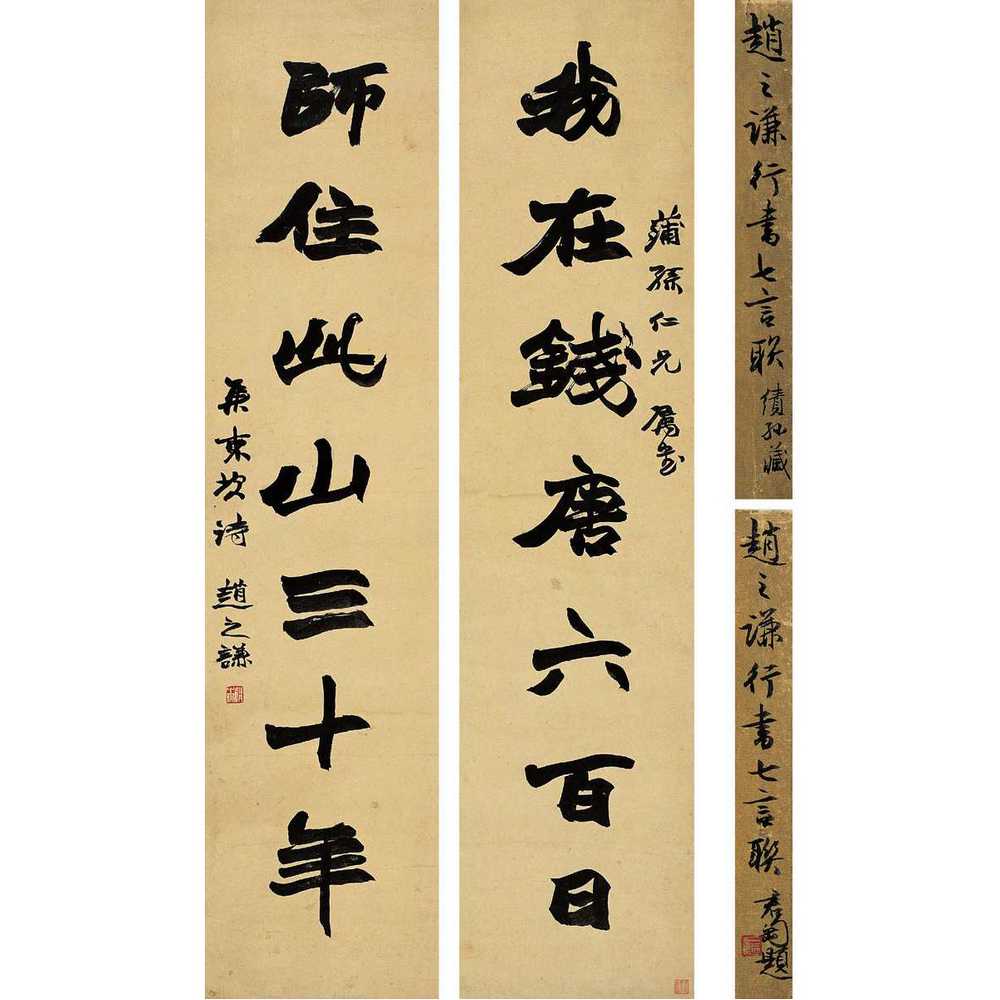 趙之謙行書七言联藏
趙之謙行書七言聯君匋題
蒲孫仁兄属書
我在錢唐六百日
師住此山三十年
集東坡詩趙之謙